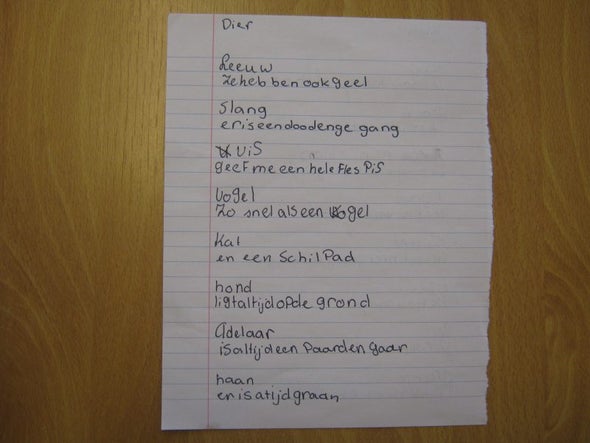 Dier
Leeuw
Ze hebben ook geel
Slang
er is een doodenge gang
vis
geef me een hele fles Pis
Vogel
Zo snel als een vogel
Kat
en een SchilPad
hond
ligt altijd op de grond
Adelaar
is altijd een Paarden gaar
haan
er is atijd graan